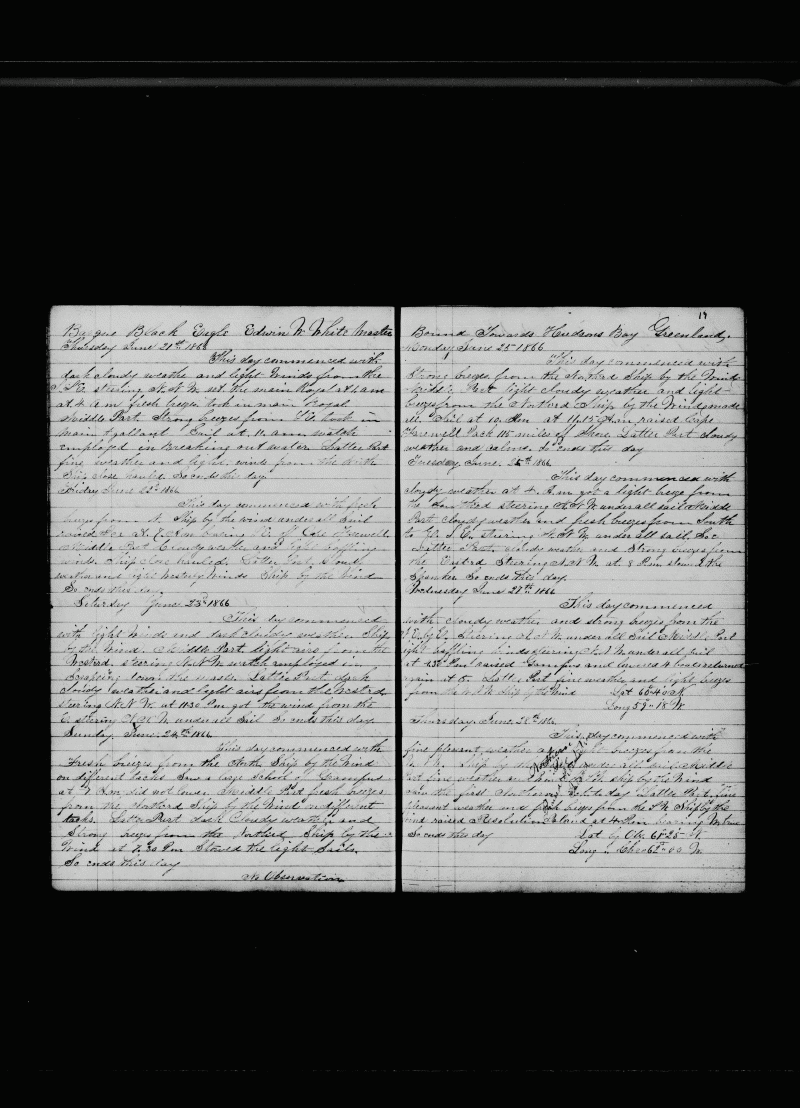 Barque Black Eagle Edwin W. White Master
Thursday June 21th 1866
This day commenced with
dark cloudy weathe and light Winds from the
steering W.N.W. set the main Royal at 1 am
at 4 a.m fresh breezes took in main Royal
Middle Part Strong breezes from took in
main t gallant Sail at 11 a.m. watch
employed in Breaking out water. Latter Part
fine weather and light winds from the North
Ship close hauled. So ends this day.
Friday June 22th 1866
This day commenced with fresh
breezes from N. Ship by the wind under all Sail
of Cape Farewell
Middle Part Cloudy weather and light baffling
winds. Ship close hauled. Latter Part Cloudy
weather and light Westerly winds Ship by the Wind
So ends this day
Saturday June 23th 1866
This day commenced
with light Winds and dark cloudy weather Ship
by the Wind. Middle Part light airs from the
Westrd, steering N.N.W. watch employed in
scraping down the masts. Latter Part dark
cloudy weather and light airs from the Westrd
steering N.N.W. at 11.30 P.m got the wind from the
E. steering W.N.W. under all Sail So ends this day.
Sunday June 24th 1866
This day commenced with
Fresh breezes from the North Ship by the Wind
on different tacks Saw a large school of Grampus
at did not lower. Middle Part fresh breezes
from the Northerd Ship by the Wind on different
tacks. Latter Part Dark Cloudy weather and
Strong breezes from the Northerd Ship by the
Wind at 7.30 P.m Stowed the light Sails.
So ends this day
No Observation
19
Bound Towards Hudsons Bay Greenland.
Monday June 25 1866
This day commenced with
Strong breezes from the Northerd Ship by the Wind
Middle Part light cloudy weather and light
breezes from the Northerd Ship by the Wind made
all Sail at 10. A.m at 11.15 A.m raised Cape
Farewell Park 115 miles of Shore. Latter Part cloudy
weather and calms. So ends this day
Tuesday, June. 26th 1866
This day commenced with
cloudy weather at 4. A.m. got a light breeze from
the Southerd steering W.N.W. under all sail Middle
Part cloudy weather and fresh breezes from South
to steering W.N.W. under all Sail
Latter Part. cloudy weather and Strong breezes from
the Eastrd Steering W.N.W. at 8 P.m stowed the
Spanker So ends this day.
Wednesday June 27th 1866
This day commenced
with cloudy weather and strong breezes from the
steering W.N.W. under all Sail Middle Part
light baffling winds steering W.N.W. under all sail
at 4.30 P.m raised Grampus and lowered 4 boats returned
again at 5. Latter Part fine weather and light breezes
from the W.N.W. Ship by the Wind Lat 60-40 N
Long 59-18 W
Thursday. June. 28th 1866
This day commenced with
fine pleasant weather and light breezes from the
Ship by the Wind under all Sail Middle
Part fine weather and Ship by the Wind
saw the first Northern to day Latter Part fine
pleasant weather and breezes from the Ship by the
Wind raised Resolution Island at 4 P.m bearing
So ends this day Lat by Obs 61-25 N
Long by Chro 62-00 W